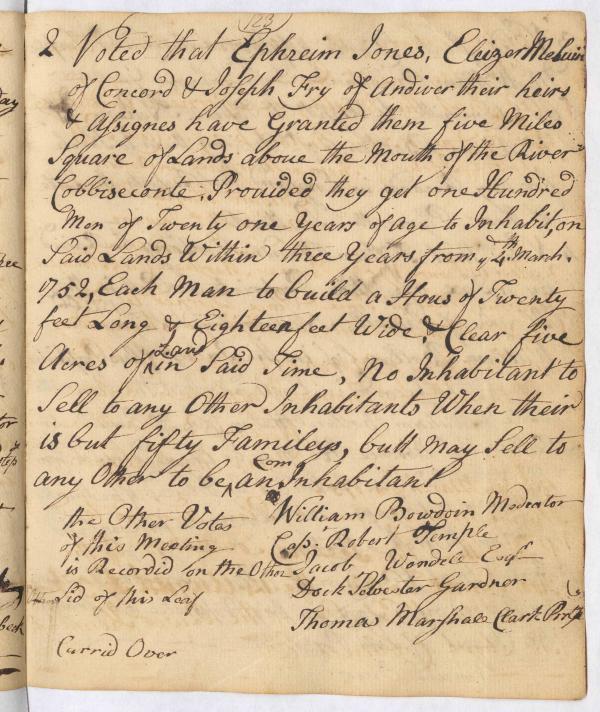 123
2 Voted that Ephreim Jones, Eleizer Melvin
of Concord & Joseph Fry of Andiver their heirs
& Assignes have Granted them five Miles
Square of Lands aboue the Mouth of the River
Cobbiseconte, Prouided they get one Hundred
Men of Twenty one Years of age to Inhabit, on
Said Lands Within three Years from ye 4th March.
1752, Each Man to build a Hous of Twenty
feet Long & Eighteen feet Wide, & Clear five
Acres of Land in Said Time, No Inhabitant to
Sell to any Other Inhabitants When their
is but fifty Famileys, butt may Sell to
any Other to be, an Com Inhabitant
the Other Votes
of this Meeting
is Recordid on the Other
Sid of this Leeif
Currid Over
William Bowdoin Modrator
Cap. Robert Temple
Jacob Wendele Esqr
Dock Selvester Gardner
Thomas Marshall Clark Prop